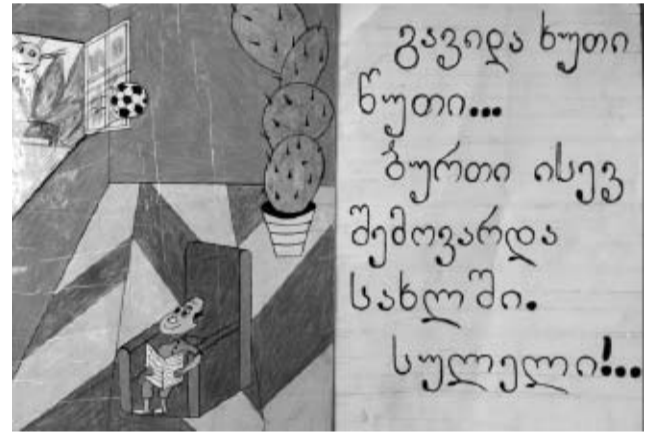 გავიდა ხუთი
წუთი...
ბურთი ისევ
შემოვარდა
სახლში.
სულელი!..